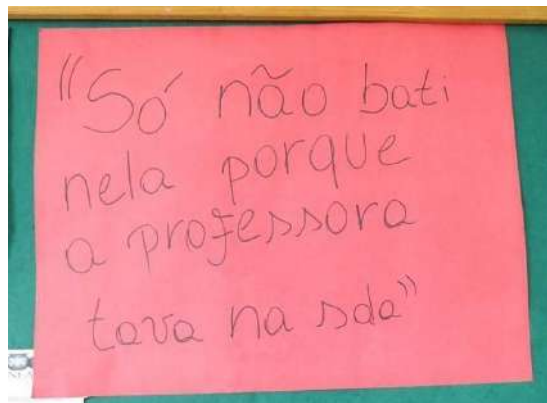 "Só não bati
nela porque
a professora
tava na sala"